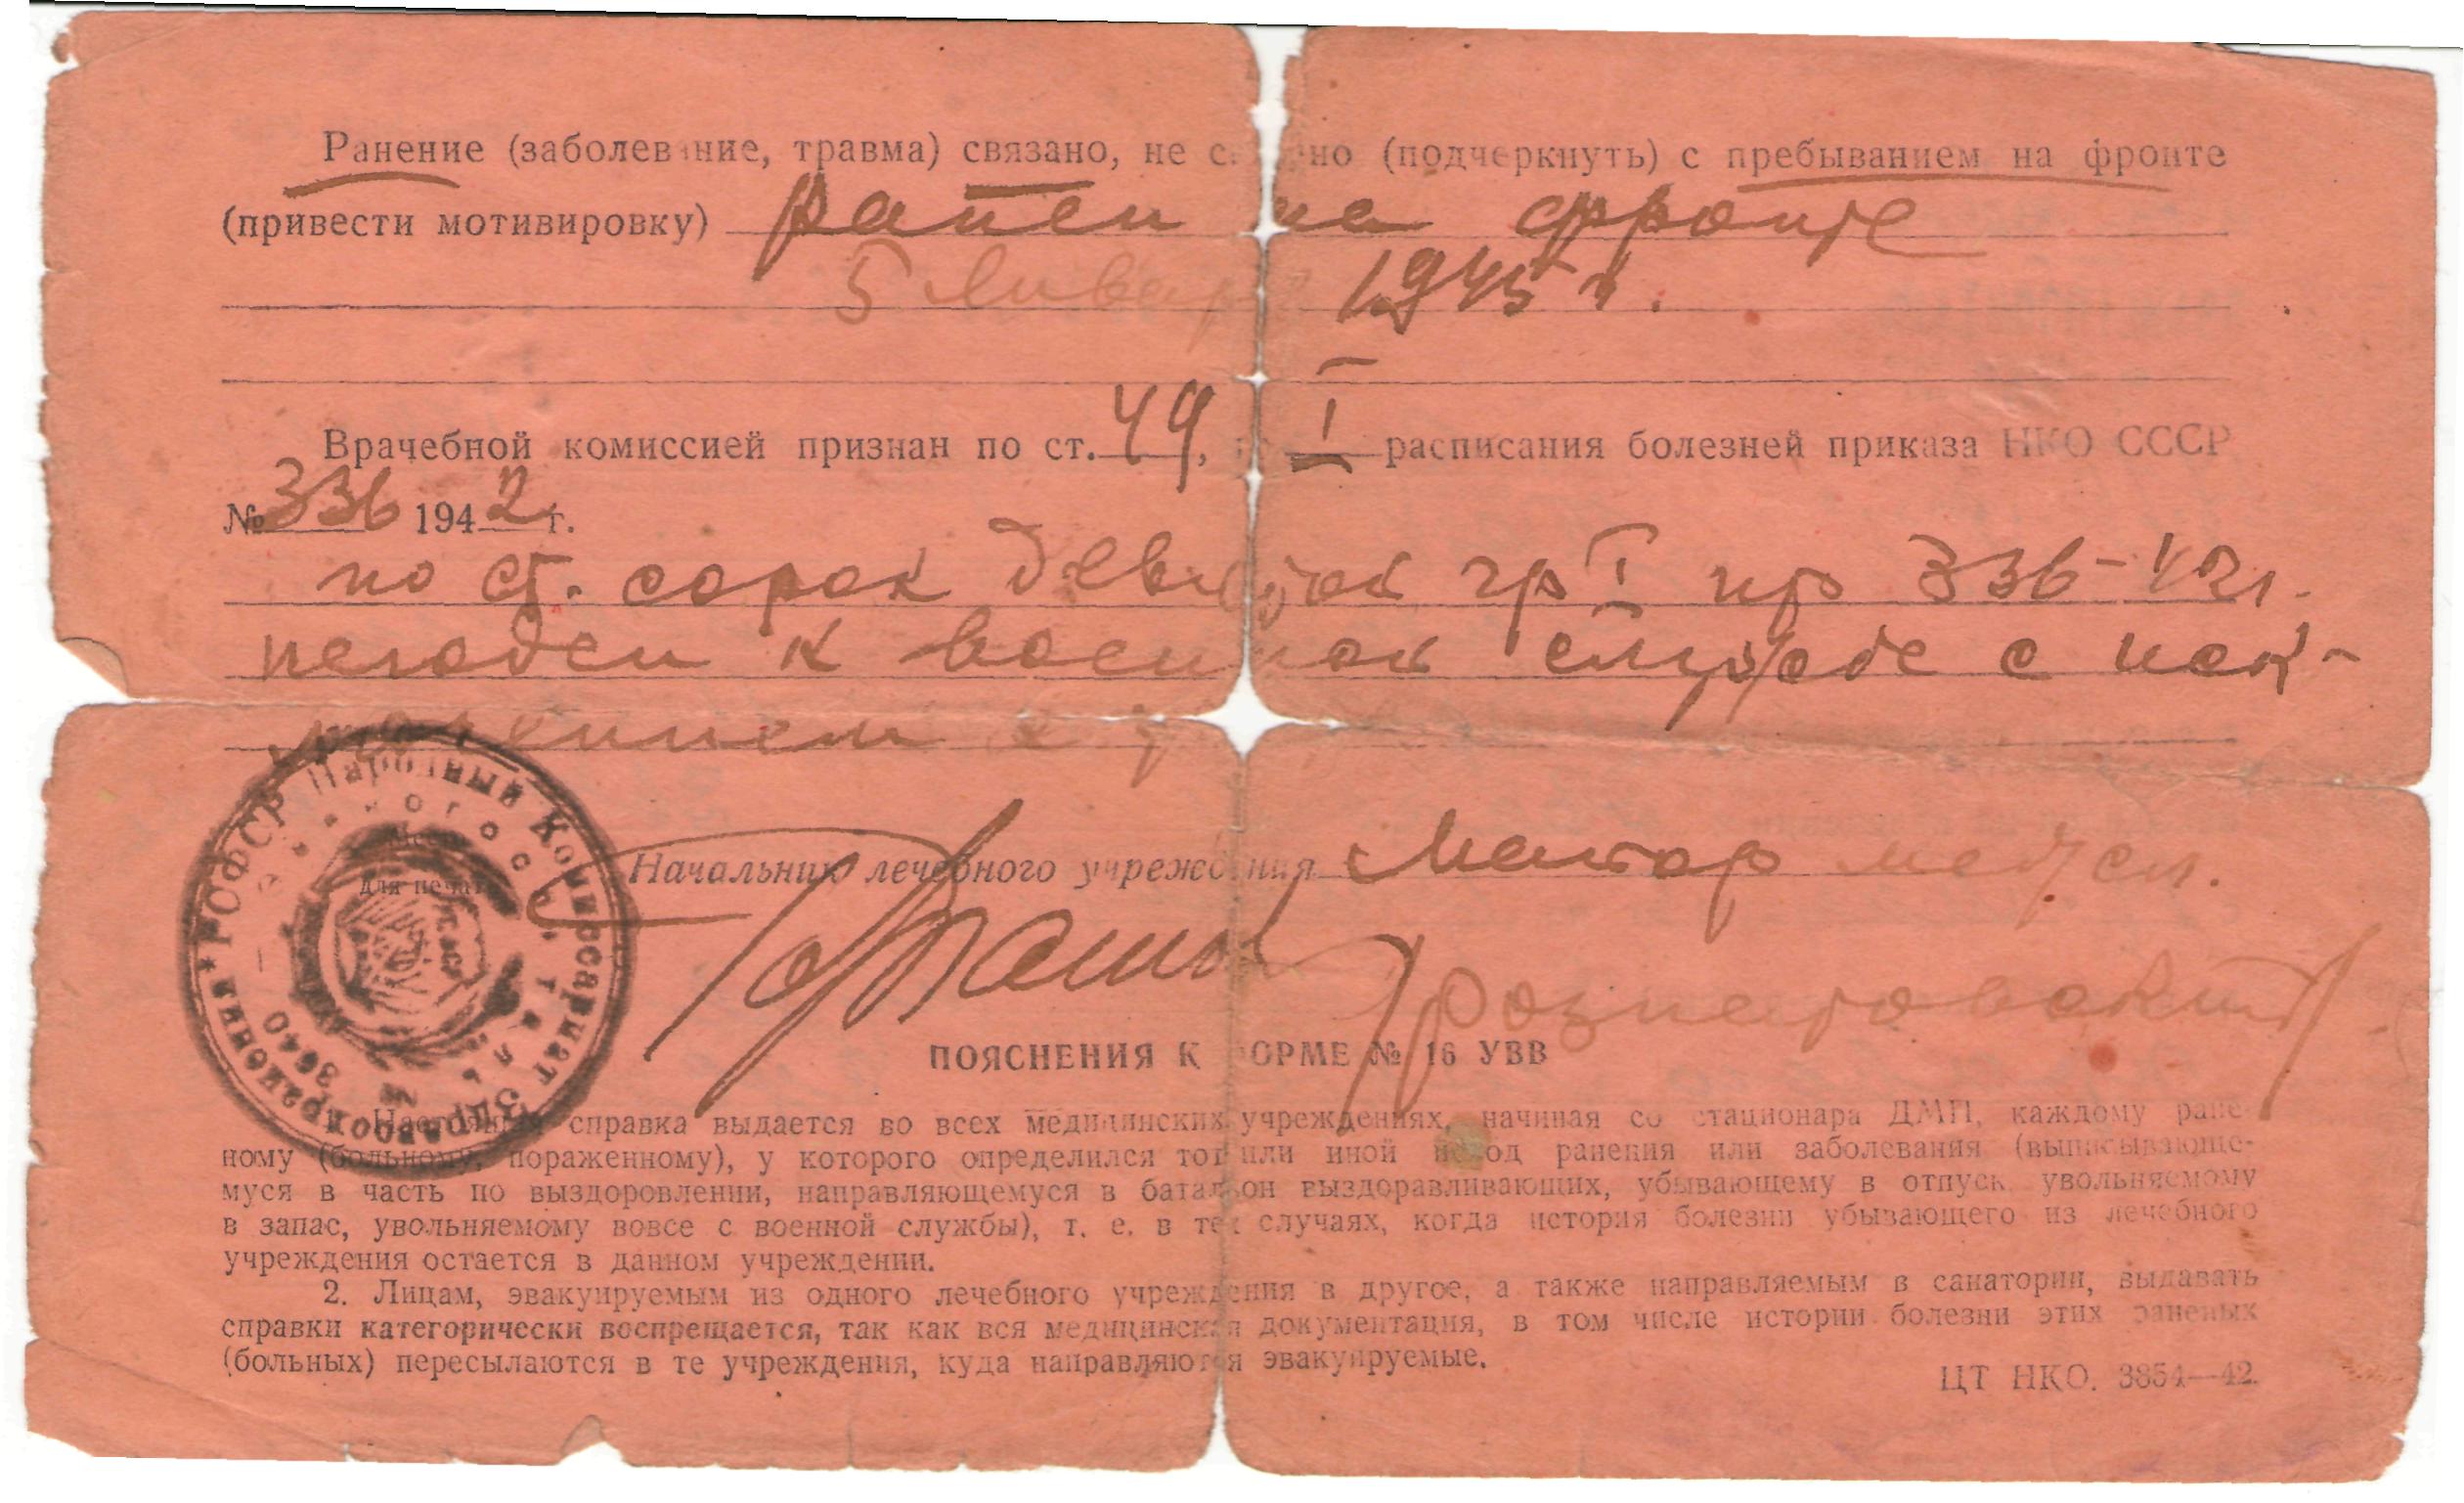 Ранение (заболевание, травма) связано, не связано (подчеркнуть) с пребыванием на фронте
(привести мотивировку) ранен на фронте
5 января 1945 г.
Врачебной комиссией признан по ст. 49, гр I расписания болезней приказа НКО СССР
№ 336 1942 г.
по ст. сорок девятой гр I пр 336-42г.
негоден к военной службе с иск-
лючением с
Начальник лечебного учреждения Майор медсл.
ПОЯСНЕНИЯ К ФОРМЕ № 16 УВВ
Настоящая справка выдается во всех медицинских учреждениях, начиная со стационара ДМП, каждому ране-
ному (больному, пораженному), у которого определился тот или иной исход ранения или заболевания (выписывающе-
муся в часть по выздоровлении, направляющемуся в батальон выздоравливающих, убывающему в отпуск, увольняемому
в запас, увольняемому вовсе с военной службы), т. е. в тех случаях, когда история болезни убывающего из лечебного
учреждения остается в данном учреждении.
2. Лицам, эвакуируемым из одного лечебного учреждения в другое, а также направляемым в санатории, выдавать
справки категорически воспрещается, так как вся медицинская документация, в том числе истории болезни этих раненых
(больных) пересылаются в те учреждения, куда направляются эвакуируемые.
ЦТ НКО. 3854—42.
РСФСР Народный Комиссариат Здравоохранения *
3640
для печати